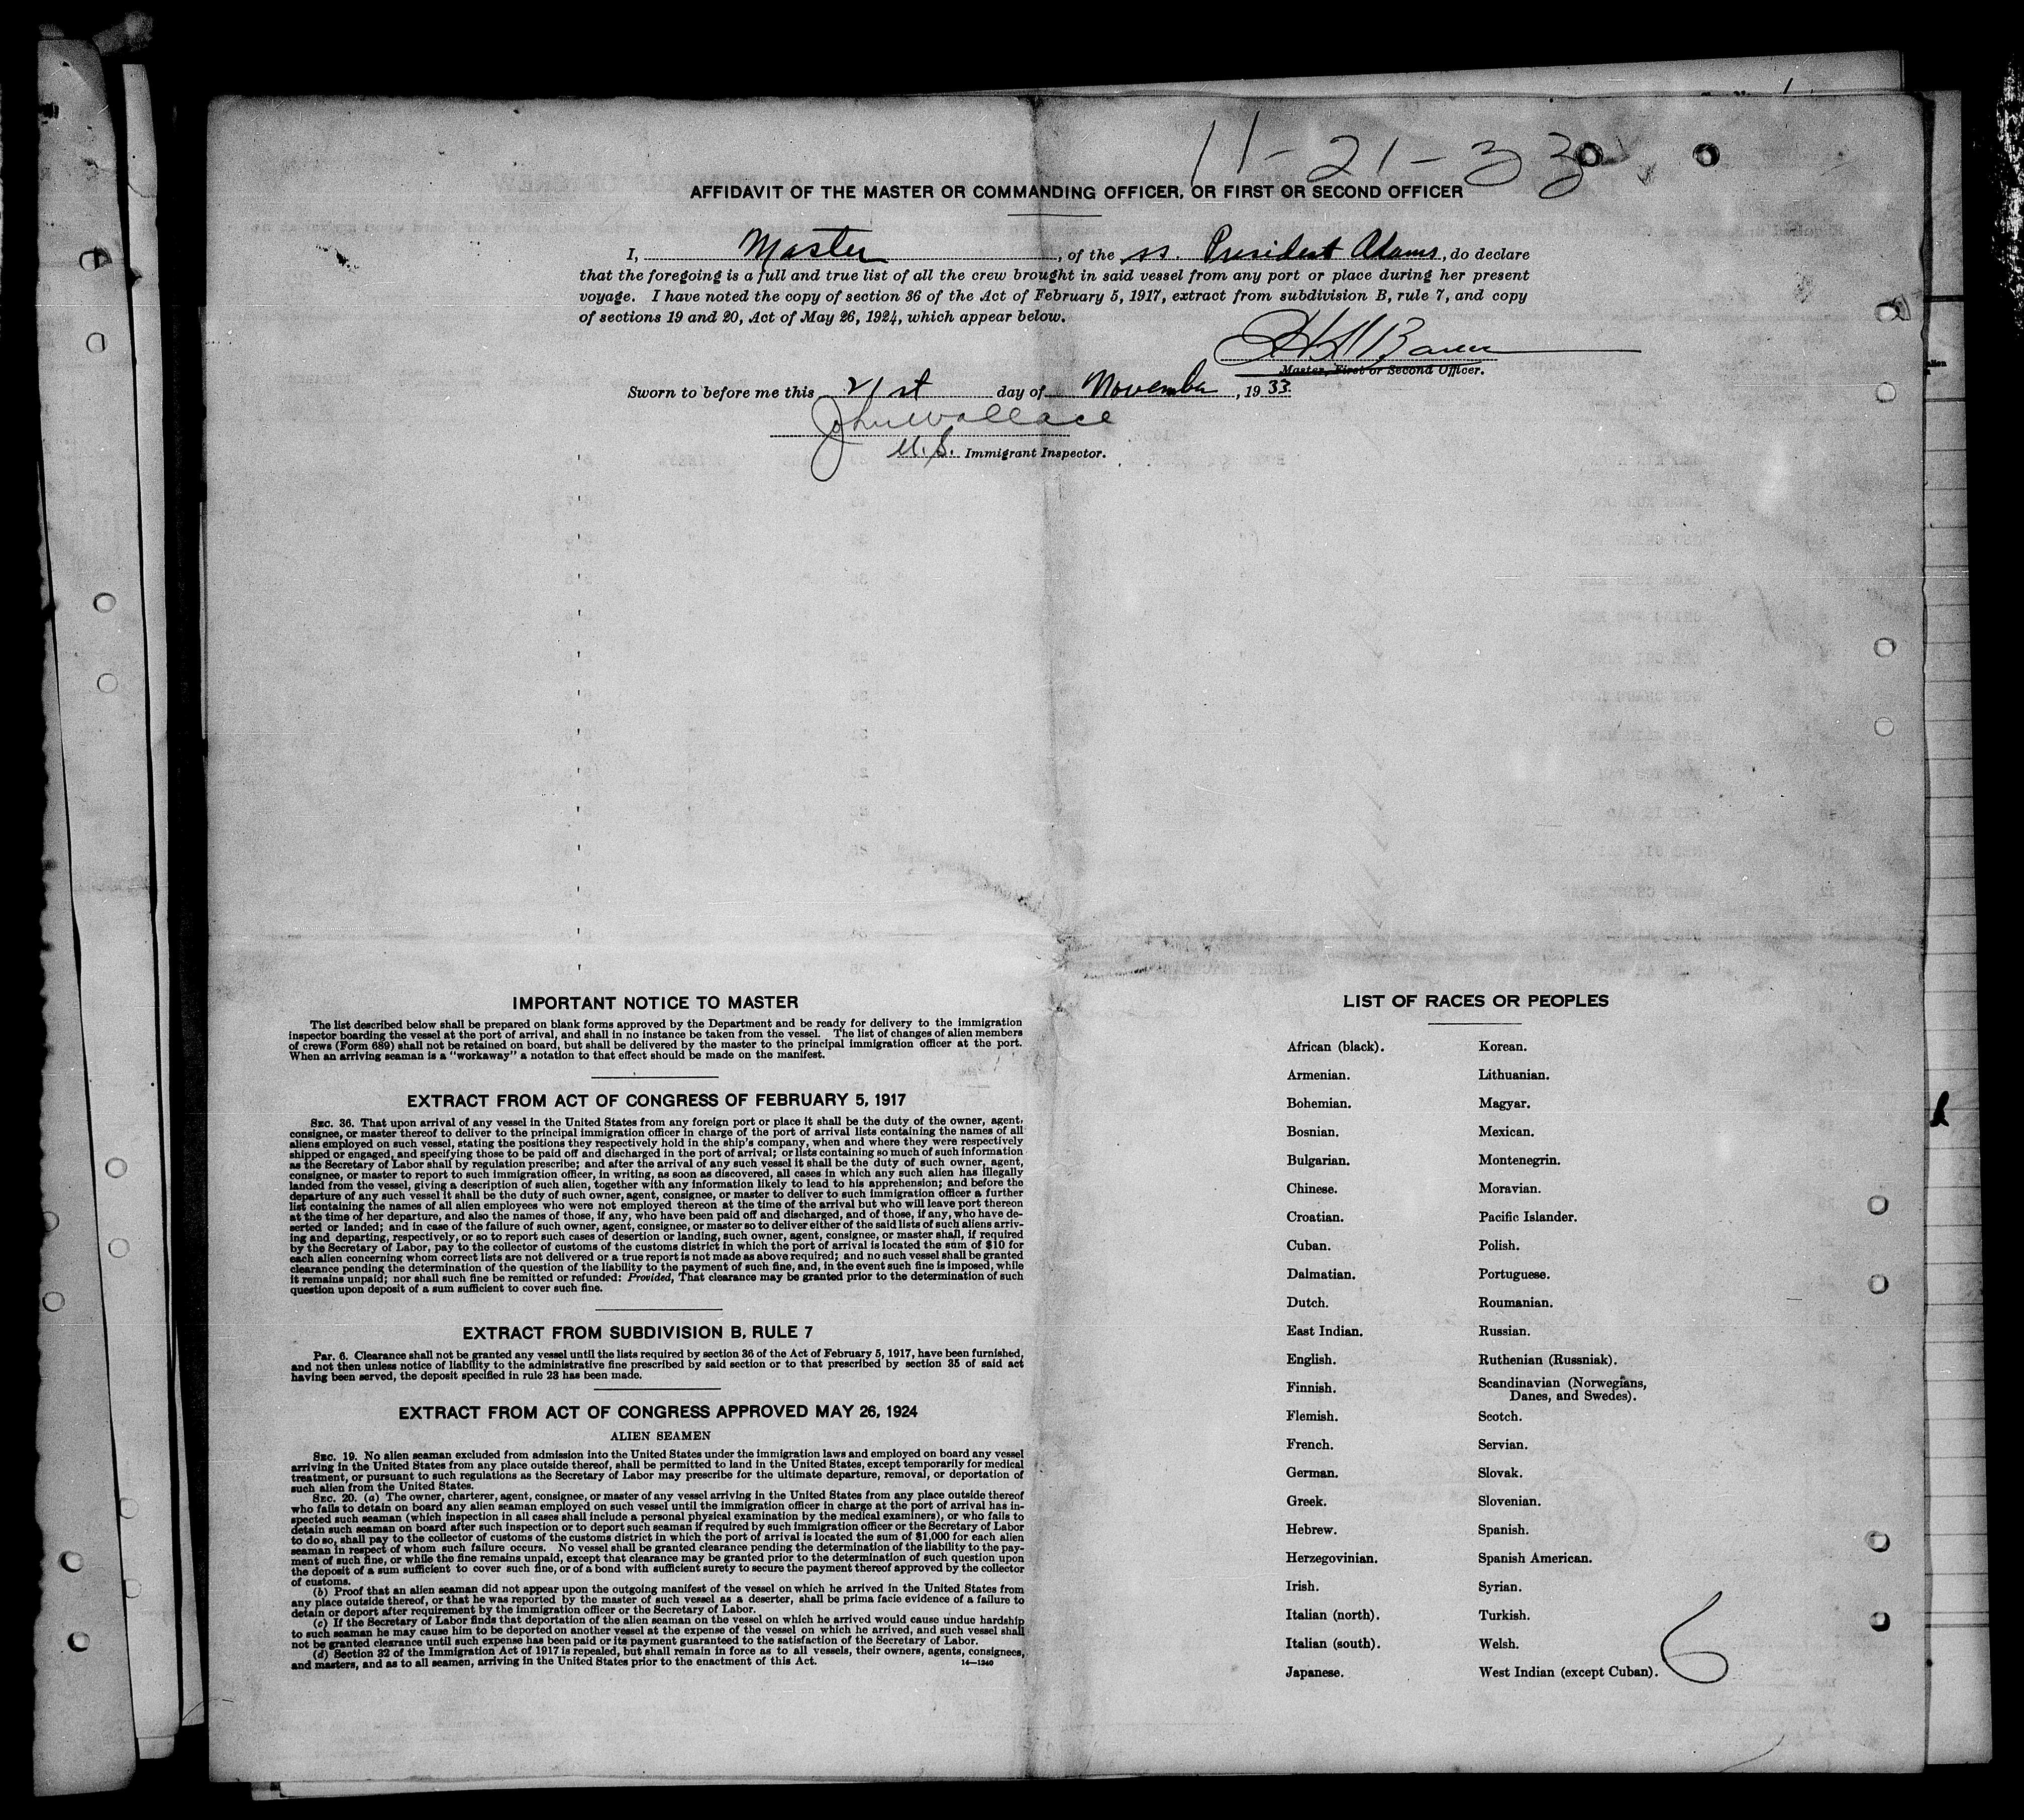 11-21-33
AFFIDAVIT OF THE MASTER OR COMMANDING OFFICER, OR FIRST OR SECOND OFFICER
I, Master, of the ss. President Adams, do declare
that the foregoing is a full and true list of all the crew brought in said vessel from any port or place during her present
voyage. I have noted the copy of section 36 of the Act of February 5, 1917, extract from subdivision B, rule 7, and copy
of sections 19 and 20, Act of May 26, 1924, which appear below.
Master, First or Second Officer.
Sworn to before me this 21st day of November, 1933.
John Wallace
U.S. Immigrant Inspector.
IMPORTANT NOTICE TO MASTER
The list described below shall be prepared on blank forms approved by the Department and be ready for delivery to the immigration
inspector boarding the vessel at the port of arrival, and shall in no instance be taken from the vessel. The list of changes of alien members
of crews (Form 689) shall not be retained on board, but shall be delivered by the master to the principal immigration officer at the port.
When an arriving seaman is a "workaway" a notation to that effect should be made on the manifest.
EXTRACT FROM ACT OF CONGRESS OF FEBRUARY 5, 1917
SEC. 36. That upon arrival of any vessel in the United States from any foreign port or place it shall be the duty of the owner, agent,
consignee, or master thereof to deliver to the principal immigration officer in charge of the port of arrival lists containing the names of all
aliens employed on such vessel, stating the positions they respectively hold in the ship's company, when and where they were respectively
shipped or engaged, and specifying those to be paid off and discharged in the port of arrival; or lists containing so much of such information
as the Secretary of Labor shall by regulation prescribe; and after the arrival of any such vessel it shall be the duty of such owner, agent,
consignee, or master to report to such immigration officer, in writing, as soon as discovered, all cases in which any such alien has illegally
landed from the vessel, giving a description of such alien, together with any information likely to lead to his apprehension; and before the
departure of any such vessel it shall be the duty of such owner, agent, consignee, or master to deliver to such immigration officer a further
list containing the names of all alien employees who were not employed thereon at the time of the arrival but who will leave port thereon
at the time of her departure, and also the names of those, if any, who have been paid off and discharged, and of those, if any, who have de-
serted or landed; and in case of the failure of such owner, agent, consignee, or master so to deliver either of the said lists of such aliens arriv-
ing and departing, respectively, or so to report such cases of desertion or landing, such owner, agent, consignee, or master shall, if required
by the Secretary of Labor, pay to the collector of customs of the customs district in which the port of arrival is located the sum of $10 for
each alien concerning whom correct lists are not delivered or a true report is not made as above required; and no such vessel shall be granted
clearance pending the determination of the question of the liability to the payment of such fine, and, in the event such fine is imposed, while
it remains unpaid; nor shall such fine be remitted or refunded: Provided, That clearance may be granted prior to the determination of such
question upon deposit of a sum sufficient to cover such fine.
EXTRACT FROM SUBDIVISION B, RULE 7
Par. 6. Clearance shall not be granted any vessel until the lists required by section 36 of the Act of February 5, 1917, have been furnished,
and not then unless notice of liability to the administrative fine prescribed by said section or to that prescribed by section 35 of said act
having been served, the deposit specified in rule 23 has been made.
EXTRACT FROM ACT OF CONGRESS APPROVED MAY 26, 1924
ALIEN SEAMEN
SEC. 19. No alien seaman excluded from admission into the United States under the immigration laws and employed on board any vessel
arriving in the United States from any place outside thereof, shall be permitted to land in the United States, except temporarily for medical
treatment, or pursuant to such regulations as the Secretary of Labor may prescribe for the ultimate departure, removal, or deportation of
such alien from the United States.
SEC. 20. (a) The owner, charterer, agent, consignee, or master of any vessel arriving in the United States from any place outside thereof
who fails to detain on board any alien seaman employed on such vessel until the immigration officer in charge at the port of arrival has in-
spected such seaman (which inspection in all cases shall include a personal physical examination by the medical examiners), or who fails to
detain such seaman on board after such inspection or to deport such seaman if required by such immigration officer or the Secretary of Labor
to do so, shall pay to the collector of customs of the customs district in which the port of arrival is located the sum of $1,000 for each alien
seaman in respect of whom such failure occurs. No vessel shall be granted clearance pending the determination of the liability to the pay-
ment of such fine, or while the fine remains unpaid, except that clearance may be granted prior to the determination of such question upon
the deposit of a sum sufficient to cover such fine, or of a bond with sufficient surety to secure the payment thereof approved by the collector
of customs.
(b) Proof that an alien seaman did not appear upon the outgoing manifest of the vessel on which he arrived in the United States from
any place outside thereof, or that he was reported by the master of such vessel as a deserter, shall be prima facie evidence of a failure to
detain or deport after requirement by the immigration officer or the Secretary of Labor.
(c) If the Secretary of Labor finds that deportation of the alien seaman on the vessel on which he arrived would cause undue hardship
to such seaman he may cause him to be deported on another vessel at the expense of the vessel on which he arrived, and such vessel shall
not be granted clearance until such expense has been paid or its payment guaranteed to the satisfaction of the Secretary of Labor.
(d) Section 32 of the Immigration Act of 1917 is repealed, but shall remain in force as to all vessels, their owners, agents, consignees,
and masters, and as to all seamen, arriving in the United States prior to the enactment of this Act. 14—1240
LIST OF RACES OR PEOPLES
African (black). Korean.
Armenian. Lithuanian.
Bohemian. Magyar.
Bosnian. Mexican.
Bulgarian. Montenegrin.
Chinese. Moravian.
Croatian. Pacific Islander.
Cuban. Polish.
Dalmatian. Portuguese.
Dutch. Roumanian.
East Indian. Russian.
English. Ruthenian (Russniak).
Finnish. Scandinavian (Norwegians,
Danes, and Swedes).
Flemish. Scotch.
French. Servian.
German. Slovak.
Greek. Slovenian.
Hebrew. Spanish.
Herzegovinian. Spanish American.
Irish. Syrian.
Italian (north). Turkish.
Italian (south). Welsh.
Japanese. West Indian (except Cuban).
6